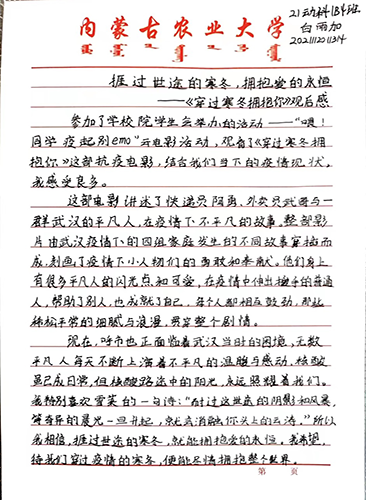 内蒙古农业大学
21动科1B4班
白雨加
2021112011314
捱过世途的寒冬，拥抱爱的永恒
——《穿过寒冬拥抱你》观后感
参加了学校院学生会举办的活动——“嘿！
同学 疫起别emo”云电影活动，观看了《穿过寒冬拥
抱你》这部抗疫电影，结合我们当下的疫情现状，
我感受良多。
这部电影讲述了快递员阿勇、外卖员武哥与一
群武汉的平凡人，在疫情下不平凡的故事，整部影
片由武汉疫情下的四组家庭发生的不同故事穿插而
成，刻画了疫情下小人物们的勇敢和奉献。他们身上
有很多平凡人的闪光点和可爱，在疫情中伸出援手的普通
人，帮助了别人，也成就了自己，每个人都相互鼓劲，那些
稀松平常的细腻与浪漫，贯穿整个剧情。
现在，呼市也正面临着武汉当时的困境，无数
平凡人每天不断上演着不平凡的温暖与感动，核酸
虽已成日常，但核酸路途中的阳光，永远照耀着我们。
我特别喜欢雪莱的一句诗：“耐过这世途的阴影和风暴
等奇异的晨光一旦升起，就会消融你头上的云涛。”所以
我相信，捱过世途的寒冬，就能拥抱爱的永恒，我希望，
待我们穿过疫情的寒冬，便能尽情拥抱整个世界。
第 页